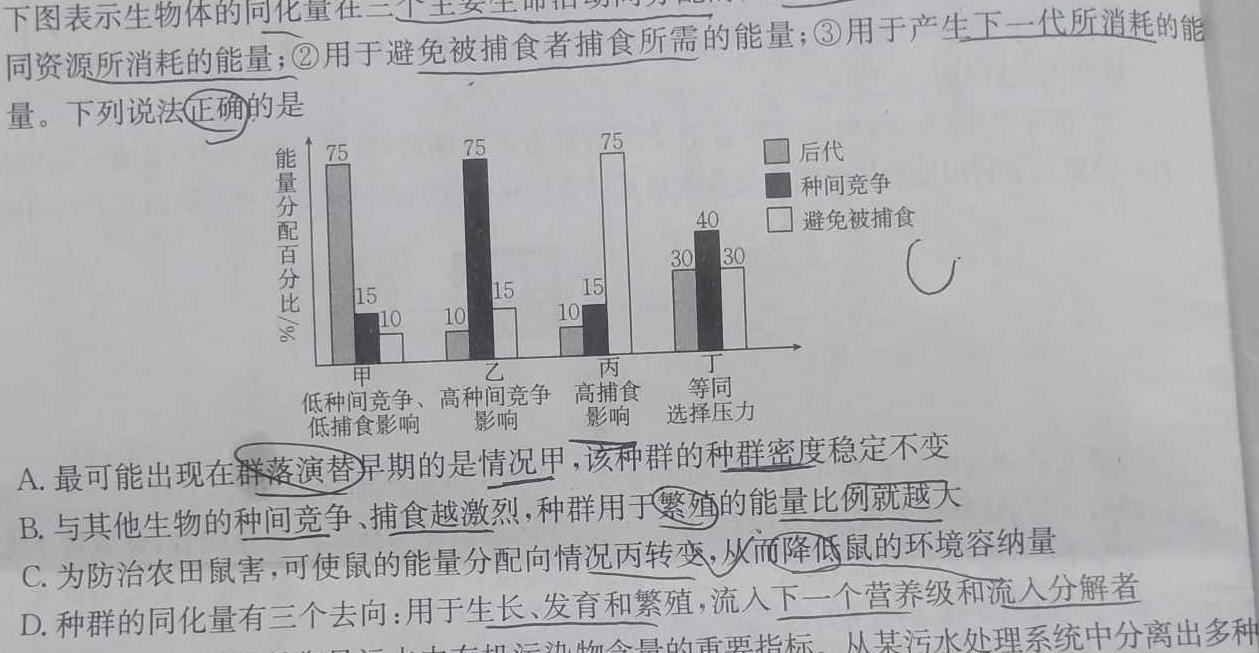 下图表示生物体的同化量在三个主要生命活动间分配
同资源所消耗的能量;②用于避免被捕食者捕食所需的能量;③用于产生下一代所消耗的能
量。下列说法正确的是
能量分配百分比/%
75
15
10
10
75
15
10
15
75
30
40
30
后代
种间竞争
避免被捕食
甲
低种间竞争、
低捕食影响
乙
高种间竞争
影响
丙
高捕食
影响
丁
等同
选择压力
A. 最可能出现在群落演替早期的是情况甲,该种群的种群密度稳定不变
B. 与其他生物的种间竞争、捕食越激烈,种群用于繁殖的能量比例就越大
C. 为防治农田鼠害,可使鼠的能量分配向情况丙转变,从而降低鼠的环境容纳量
D. 种群的同化量有三个去向:用于生长、发育和繁殖,流入下一个营养级和流入分解者
污水中有机污染物含量的重要指标。从某污水处理系统中分离出多种